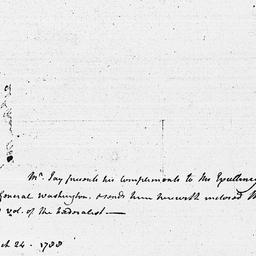 Mr. Jay presents his compliments to his Excellency
General Washington, & sends him herewith inclosed
vol. of the Federalist —
ch 24. 1788